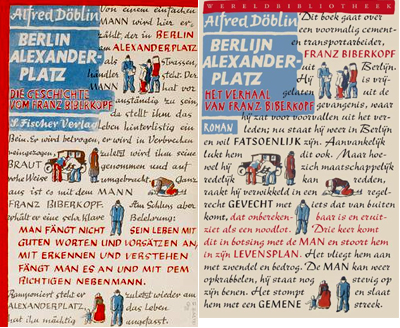 Alfred Döblin
BERLIN
ALEXANDER-
PLATZ
DIE GESCHICHTE
VOM FRANZ BIBERKOPF
S. Fischer Verlag
Von einem einfachen
MANN wird hier er-
zählt, der in BERLIN
am ALEXANDERPLATZ
als Straßen
steht. Der MANN hat
vor
anständig zu sein
da stellt ihm das
Leben hinterlistig ein
Bein. Er wird betrogen, er wird in Verbrechen
zuletzt wird ihm seine
BRAUT genommen und auf
rohe Weise umgebracht. Ganz
aus ist es mit dem MANN
FRANZ BIBERKOPF. Am Schluss aber
erhält er eine sehr klare Belehrung:
MAN FÄNGT NICHT SEIN LEBEN MIT
GUTEN WORTEN UND VORSÄTZEN AN,
MIT ERKENNEN UND VERSTEHEN
FÄNGT MAN ES AN UND MIT DEM
RICHTIGEN NEBENMANN.
Ramponiert steht er zuletzt wieder am
ALEXANDERPLATZ, das Leben
hat ihn mächtig angefasst.
WERELDBIBLIOTHEEK
Alfred Döblin
BERLIJN
ALEXANDER-
PLATZ
HET VERHAAL
VAN FRANZ BIBERKOPF
ROMAN
Dit boek gaat over
een voormalig cement-
en transportarbeider,
FRANZ BIBERKOPF
uit Berlijn.
Hij is vrij-
gelaten uit de
gevangenis, waar
hij zat voor voorvallen uit het ver-
leden; nu staat hij weer in Berlijn
en wil FATSOENLIJK zijn. Aanvankelijk
lukt hem dit ook. Maar hoe-
wel hij zich maatschappelijk
redelijk kan redden,
raakt hij verwikkeld in een regel-
recht GEVECHT met iets dat van buiten
komt, dat onbereken- baar is en eruit-
ziet als een noodlot. Drie keer komt
dit in botsing met de MAN en stoort hem
in zijn LEVENSPLAN. Het vliegt hem aan
met zwendel en bedrog. De MAN kan weer
opkrabbelen, hij staat nog stevig op
zijn benen. Het stompt en slaat
hem met een GEMENE streek.